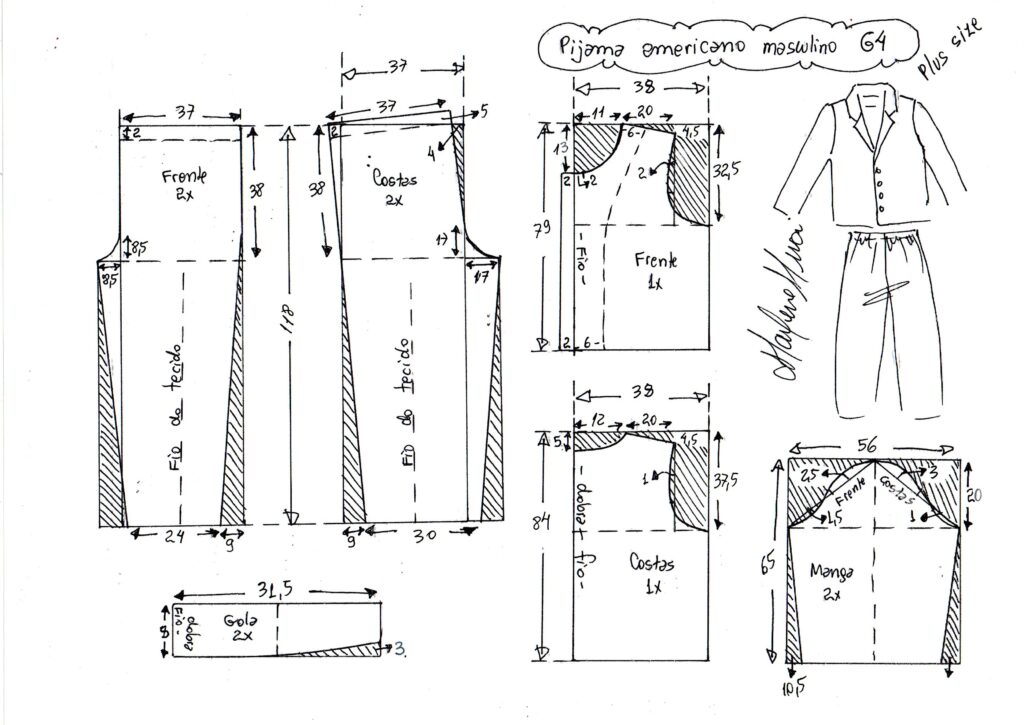 Pijama americano masculino G4
Plus size
37
2
Frente
2x
38
8,5
8,5
Fio do tecido
24
9
118
37
37
5
2
4
Costas
2x
38
17
17
Fio do tecido
9
30
31,5
8
Fio-
dobra
Gola
2x
3
38
11
20
4,5
6-
13
2
2
2
32,5
79
-Fio-
Frente
1x
2
6-
38
12
20
4,5
5
1
37,5
84
-dobra+fio-
Costas
1x
56
2,5
3
Frente
Costas
1,5
1
20
65
Manga
2x
10,5